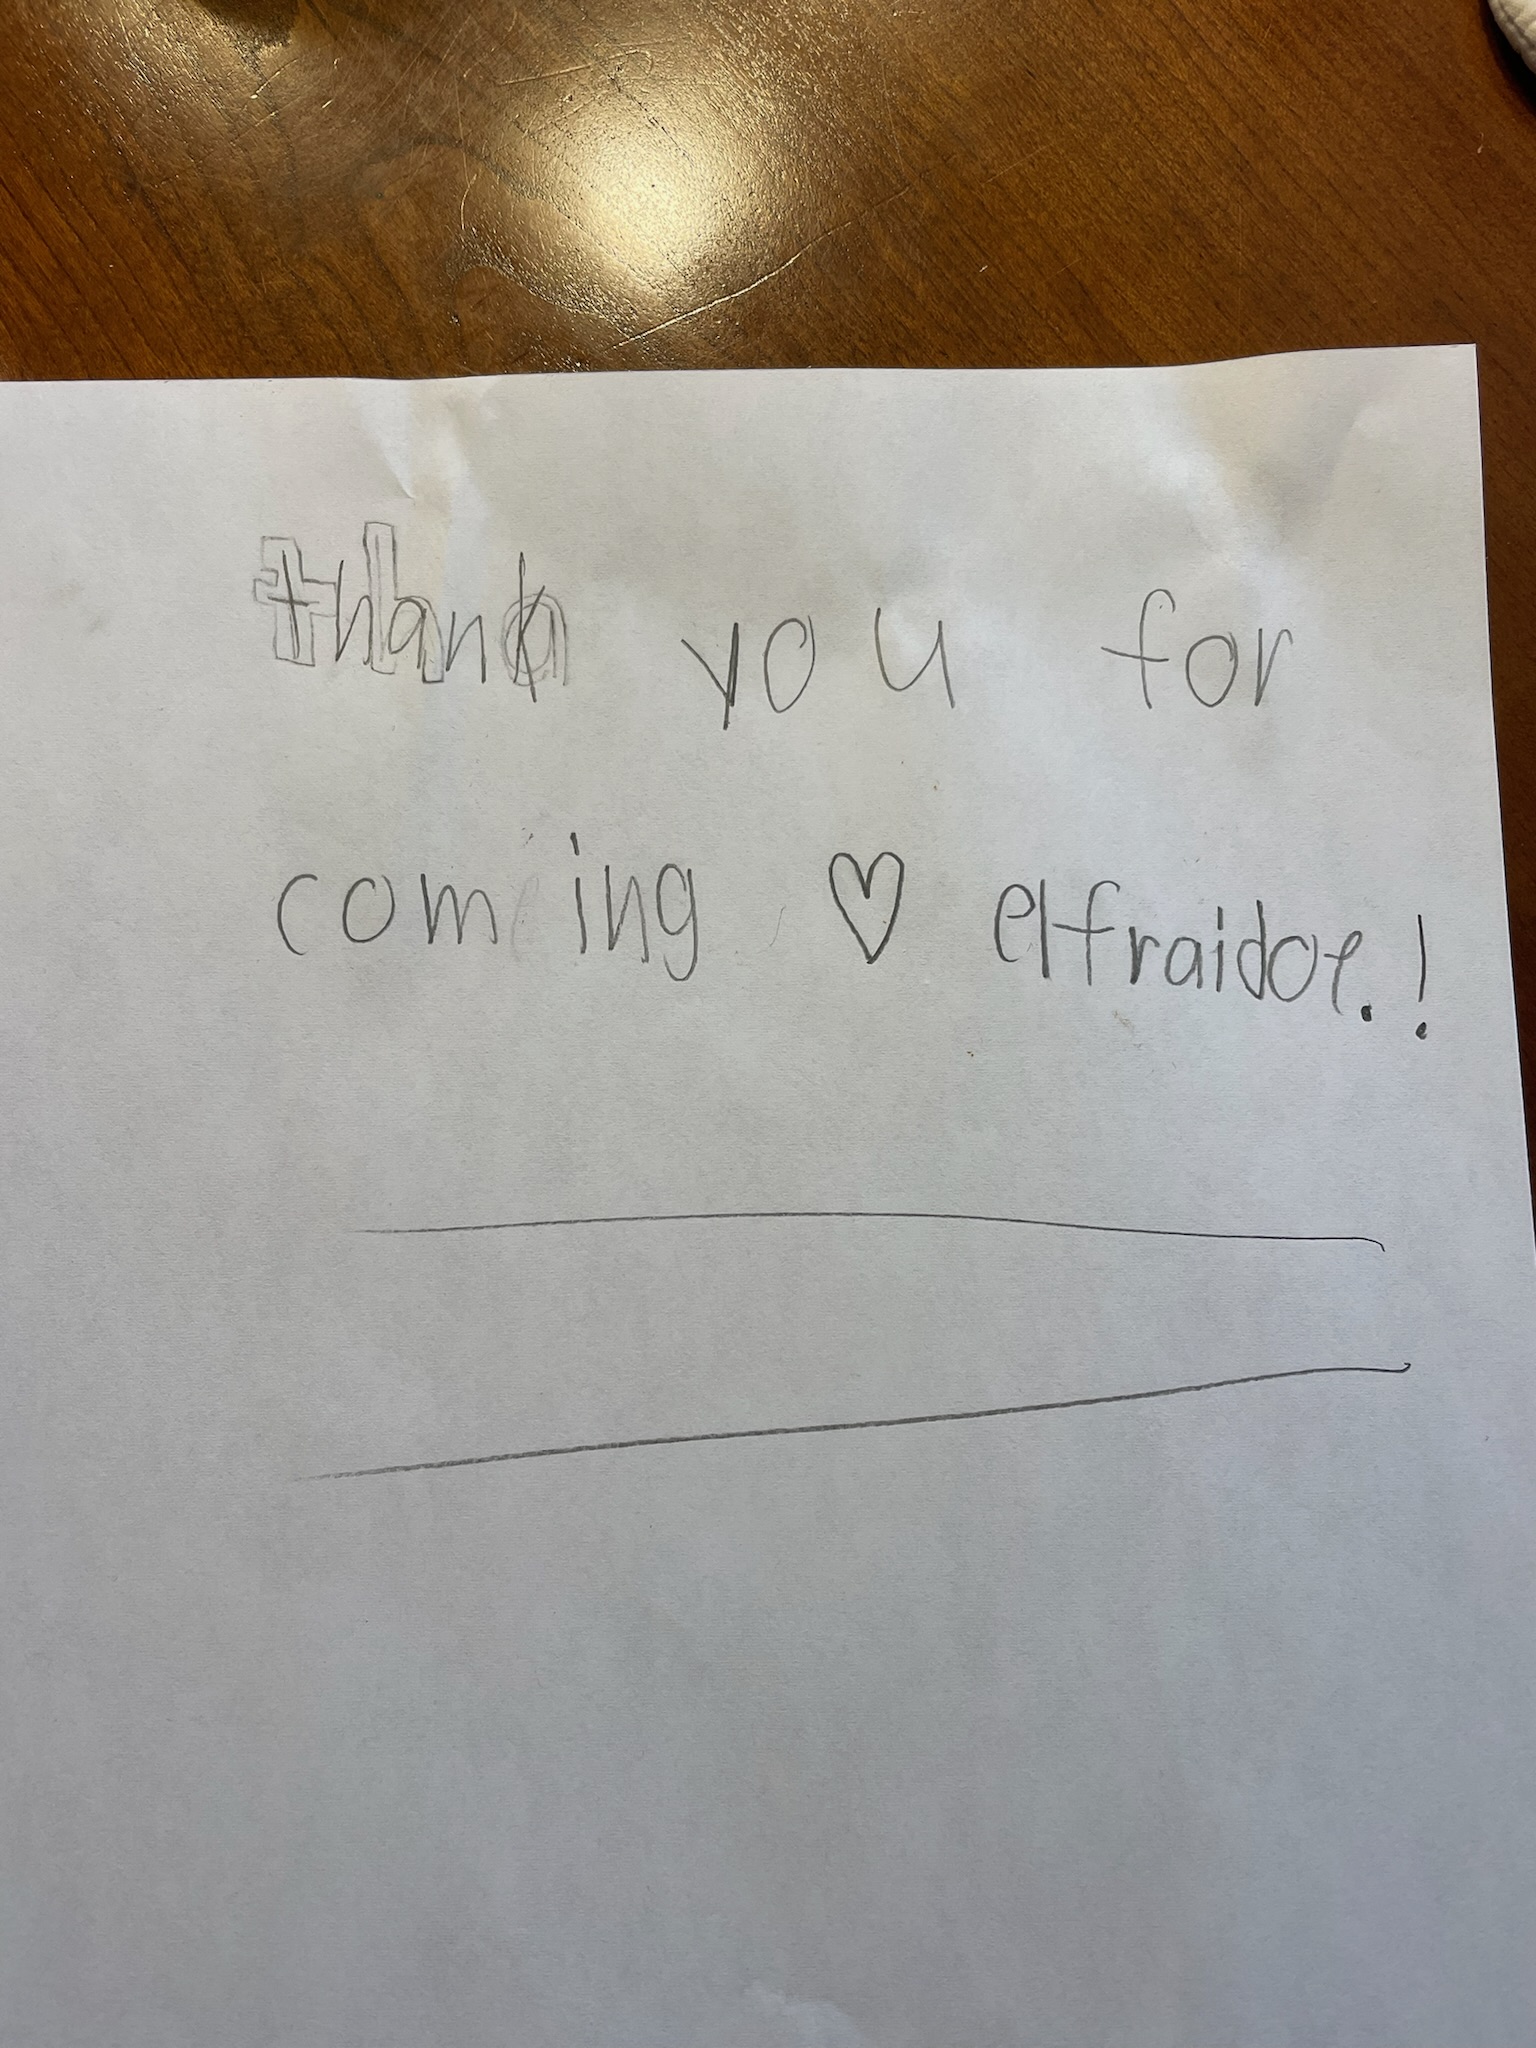 thank you for
coming ♡ elfraidoe.!